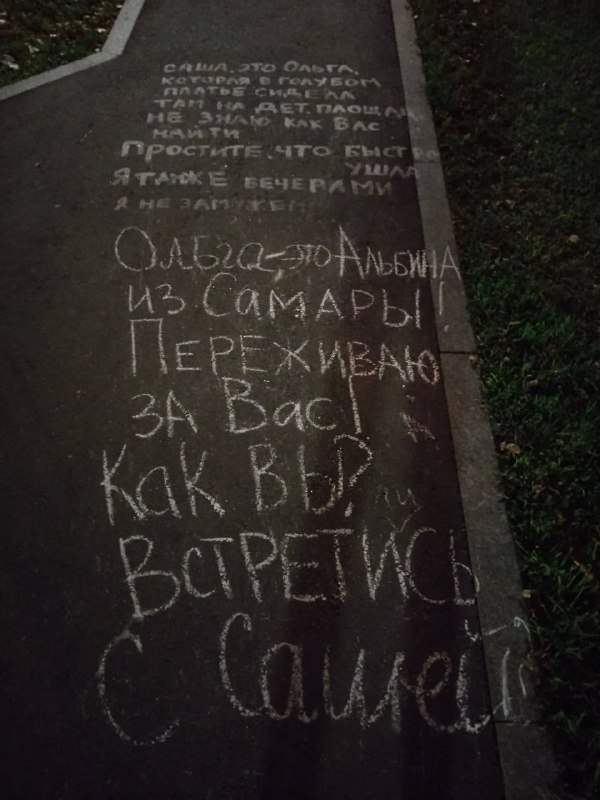 САША, ЭТО ОЛЬГА,
КОТОРАЯ В ГОЛУБОМ
ПЛАТЬЕ СИДЕЛА
ТАМ НА ДЕТ. ПЛОЩАД
НЕ ЗНАЮ КАК ВАС
НАЙТИ
ПРОСТИТЕ, ЧТО БЫСТРО
УШЛА
Я ТАКЖЕ ВЕЧЕРАМИ
Я НЕ ЗАМУЖЕМ
Ольга, это Альбина
из Самары!
Переживаю
за Вас!
Как Вы?
Встретись
с Сашей